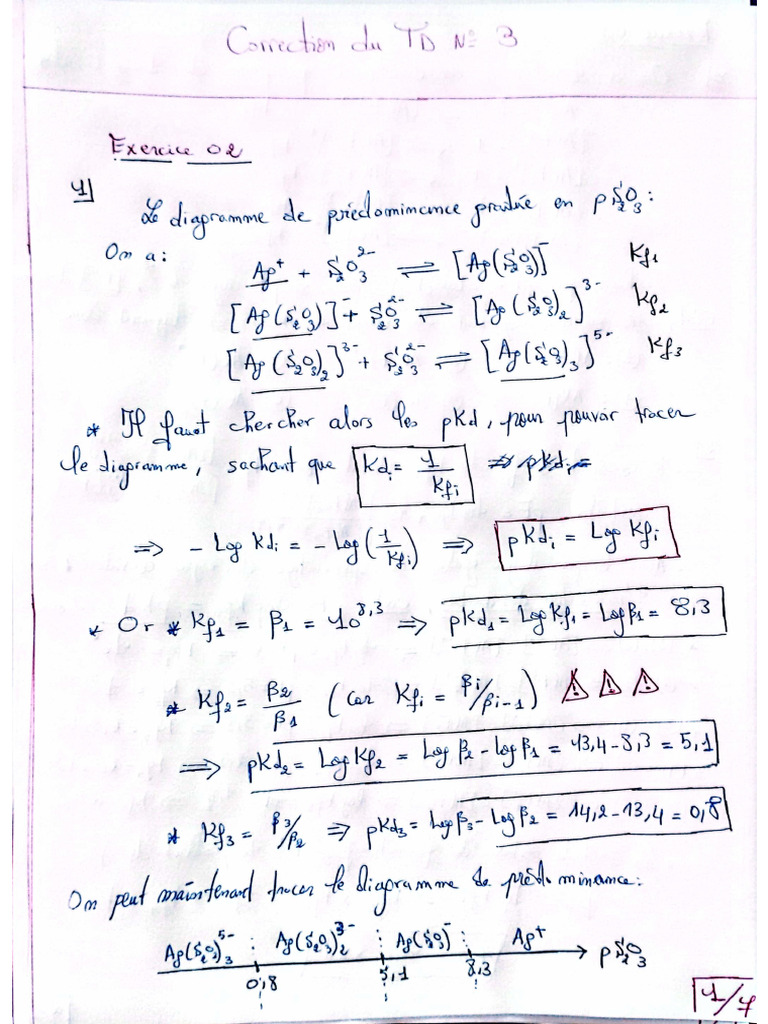 Correction du TD N° 3
Exercice 02
1]
Le diagramme de prédominance graduée en pS₂O₃ :
On a :
Ag⁺ + S₂O₃²⁻ ⇌ [Ag(S₂O₃)]⁻ Kf₁
[Ag(S₂O₃)]⁻ + S₂O₃²⁻ ⇌ [Ag(S₂O₃)₂]³⁻ Kf₂
[Ag(S₂O₃)₂]³⁻ + S₂O₃²⁻ ⇌ [Ag(S₂O₃)₃]⁵⁻ Kf₃
* Il faut chercher alors les pKd, pour pouvoir tracer
le diagramme, sachant que Kdᵢ = 1/Kfᵢ
⇒ - Log Kdᵢ = - log(1/Kfᵢ) ⇒ pKdᵢ = Log Kfᵢ
* Or * Kf₁ = β₁ = 10^8,3 ⇒ pKd₁ = Log Kf₁ = Log β₁ = 8,3
* Kf₂ = β₂/β₁ (car Kfᵢ = βᵢ/βᵢ₋₁) ⚠ ⚠ ⚠
⇒ pKd₂ = Log Kf₂ = Log β₂ - log β₁ = 13,4 - 8,3 = 5,1
* Kf₃ = β₃/β₂ ⇒ pKd₃ = Log β₃ - Log β₂ = 14,2 - 13,4 = 0,8
On peut maintenant tracer le diagramme de prédominance :
Ag(S₂O₃)₃⁵⁻ Ag(S₂O₃)₂³⁻ Ag(S₂O₃)⁻ Ag⁺ pS₂O₃
0,8 5,1 8,3
1/7